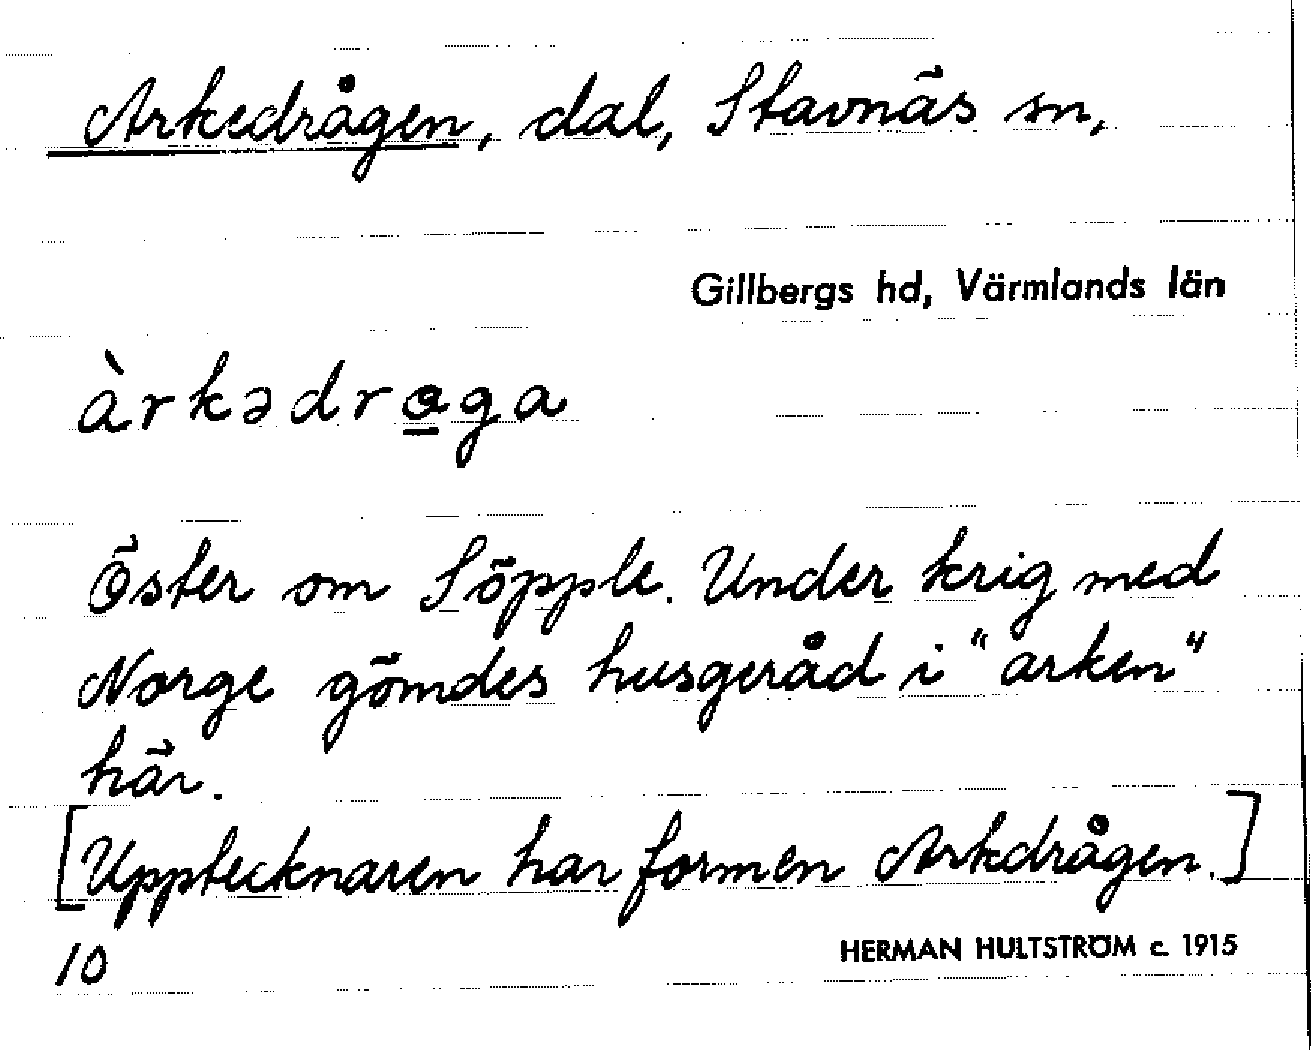 Arkedrågen, dal, Stavnäs sn,
Gillbergs hd, Värmlands län
àrkədrꝋga
Öster om Söpple. Under krig med
Norge gömdes husgeråd i "arken"
här.
[Upptecknaren har formen Arkdrågen.]
10
HERMAN HULTSTRÖM c. 1915